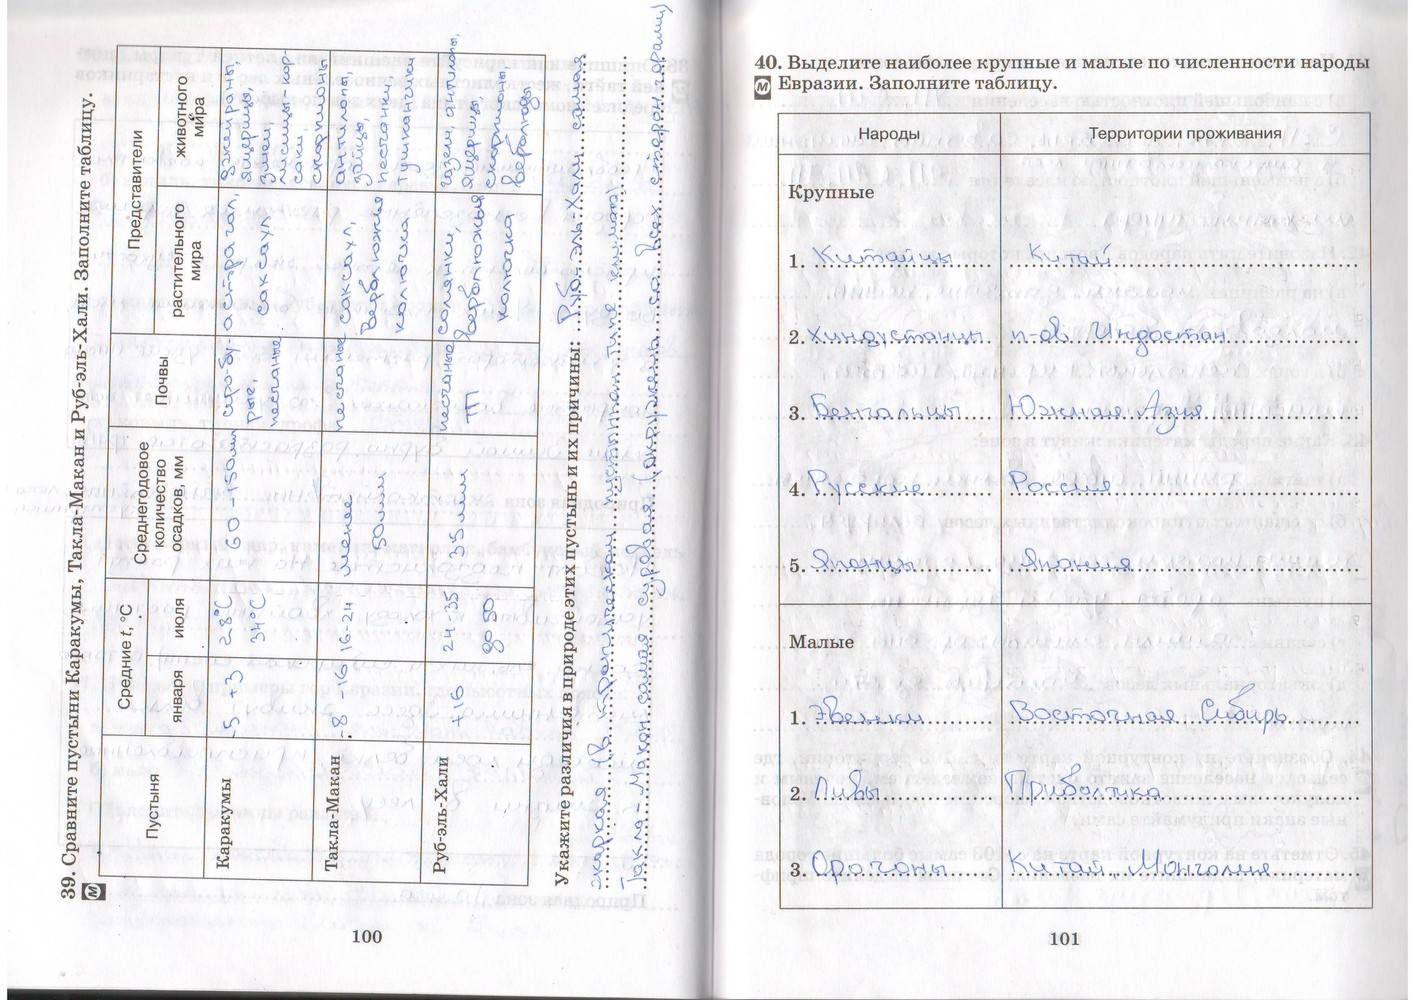 39. Сравните пустыни Каракумы, Такла-Макан и Руб-эль-Хали. Заполните таблицу.
М
Пустыня
Средние t, °С
января
июля
Среднегодовое
количество
осадков, мм
Почвы
Представители
растительного
мира
животного
мира
Каракумы
-5 +3
28°С
34°С
60 -150мм
серо-бу-
рые,
песчаные
астрагал,
саксаул
вараны,
ящерицы,
змеи,
лисицы-кор-
саки,
скорпионы
Такла-Макан
-8 -10
16-24
менее
50мм
песчаные
саксаул,
Верблюжья
колючка
антилопы,
зайцы,
песчанки,
тушканчики
Руб-эль-Хали
+16
24-35
до 50
35мм
песчаные
солянки,
верблюжья
колючка
газели, антилопы,
ящерицы,
скорпионы,
верблюды
Укажите различия в природе этих пустынь и их причины: Руб-эль-Хали самая
жаркая тк. в тропическом пустынном типе климата
Такла-Макан самая суровая (окружена со всех сторон горами)
100
40. Выделите наиболее крупные и малые по численности народы
М Евразии. Заполните таблицу.
Народы
Территории проживания
Крупные
1. Китайцы Китай
2. хиндустанцы п-ов. Индостан
3. Бенгальцы Южная Азия
4. Русские Россия
5. Японцы Япония
Малые
1. Эвенки Восточная Сибирь
2. Ливы Прибалтика
3. Орочоны Китай Монголия
101